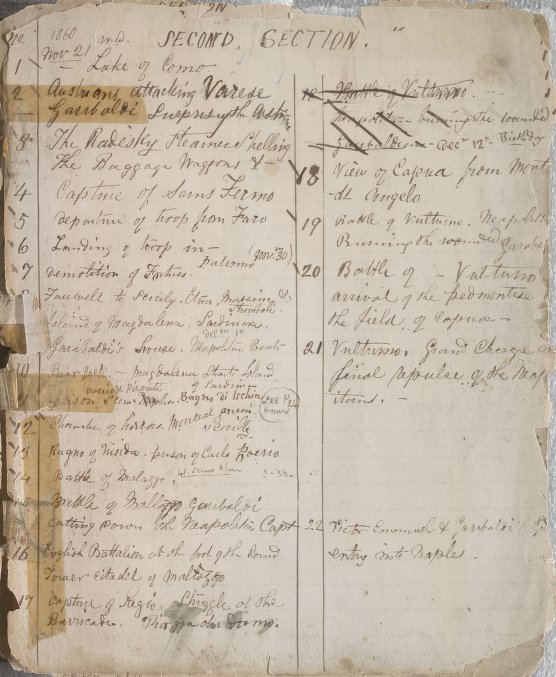 No.
1860 wed.
Nov 21
SECOND. SECTION.
1 Lake of Como
2 Austrians attacking Varese
Garibaldi Surprising the
3 The Radesky Steamer Shelling
the Baggage Waggons &
4 Capture of Sans Fermo
5 departure of troop from Faro
6 Landing of troop in
Palermo Nov. 30
7 demolition of
Farwell to Sicily. Etna, Messina &
Stromboli
Island of Magdalena. Sardinia.
Dec 10
Garibaldi's house. Neapolitan Boats
10 Bear Rock - Magdalena Strait Island
of Sardin
11 poison Naples. Bagno di Ischia
12 Chamber of horrors. prison
13 Bagno of Nisida. prison of Carlo Poerio
14 Battle of Malazzo,
15 Battle of Garibaldi
Cutting down the Neapolitan Capt
16 English Battalion at the foot of the Round
Tower Citadel of
17 Capture of Regio. Struggle at the
Barricade. Piazza del Duomo.
18 Battle of Vulturno
burning the wounded
Garibaldi Dec 12th
18 View of Capua from Mont
St Angelo
19 Battle of Vulturno. Neapolit
Burning the wounded Garaba
20 Battle of - Vulturno
arrival of the piedmontese
the field of Capua -
21 Vulturno. Grand Charge
final repulse of the Neap
itans. -
22 Victor Emanuel & Garibaldi's
entry into Naples.